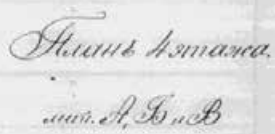 Планъ 4 этажа.
лит. А, Б и В